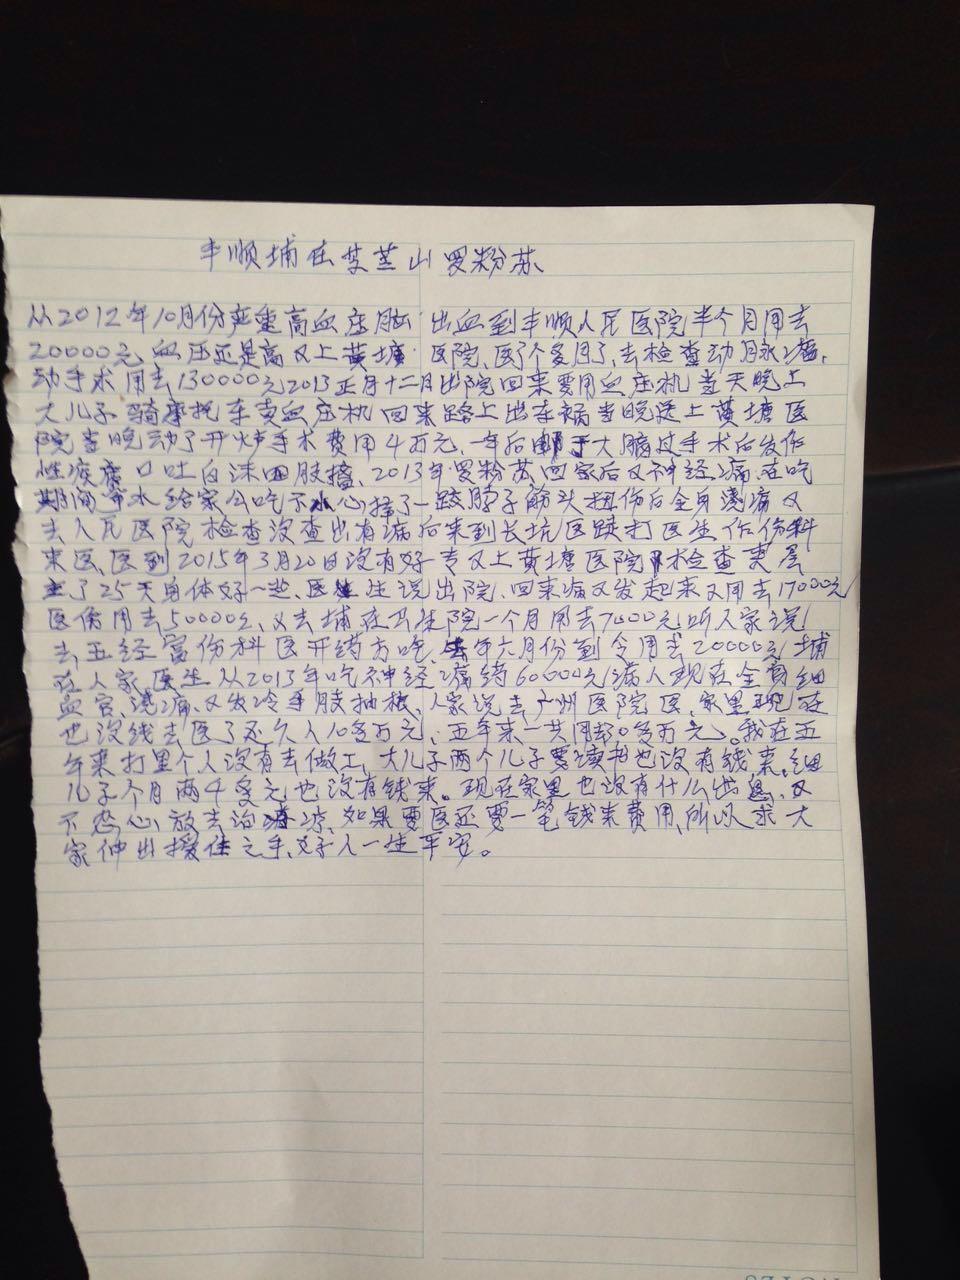 丰顺埔在芏芏山罗粉苏
从2012年10月份严重高血压脑出血到丰顺人民医院半个月用去
20000元血压还是高又上黄塘医院、医了个多月了、去检查动脉瘤、
动手术用去130000元2013正月十二日出院回来要用血压机当天晚上
大儿子骑摩托车卖血压机回来路上出车祸当晚送上黄塘医
院当晚动了开炉手术费用4万元、一年后由于大脑过手术后发作
性癀癀口吐白沫四肢搐、2013年罗粉苏回家后又神经痛在吃
期间带水给家公吃不小心挂了一跤脖子筋头扭伤后全身湊痛又
去人民医院检查没查出有病后来到长坑医跌打医生作伤科
来医、医到2015年3月20日没有好专又上黄塘医院检查
了25天身体好一些、医生说出院、回来病又发起来又用去17000元
医伤用去50000元、又去埔在卫生院一个月用去7000元听人家说
去五经富伤科医开药方吃、去年六月份到今用去20000元埔
在人家医生从2013年吃神经痛药60000元病人现在全有细
血官、湊痛、又发冷手肢抽梗、人家说去广州医院医、家里现在
也没钱去医了还欠人10多万元、五年来一共用50多万元。我在五
年来打里个人没有去做工、大儿子两个儿子要读书也没有钱来、细
儿子个月两4多元也没有钱来。现在家里也没有什么出息、又
不忍心放去治疗、如果要医还要一笔钱来费用、所以求大
家伸出援住之手、好人一生平安。